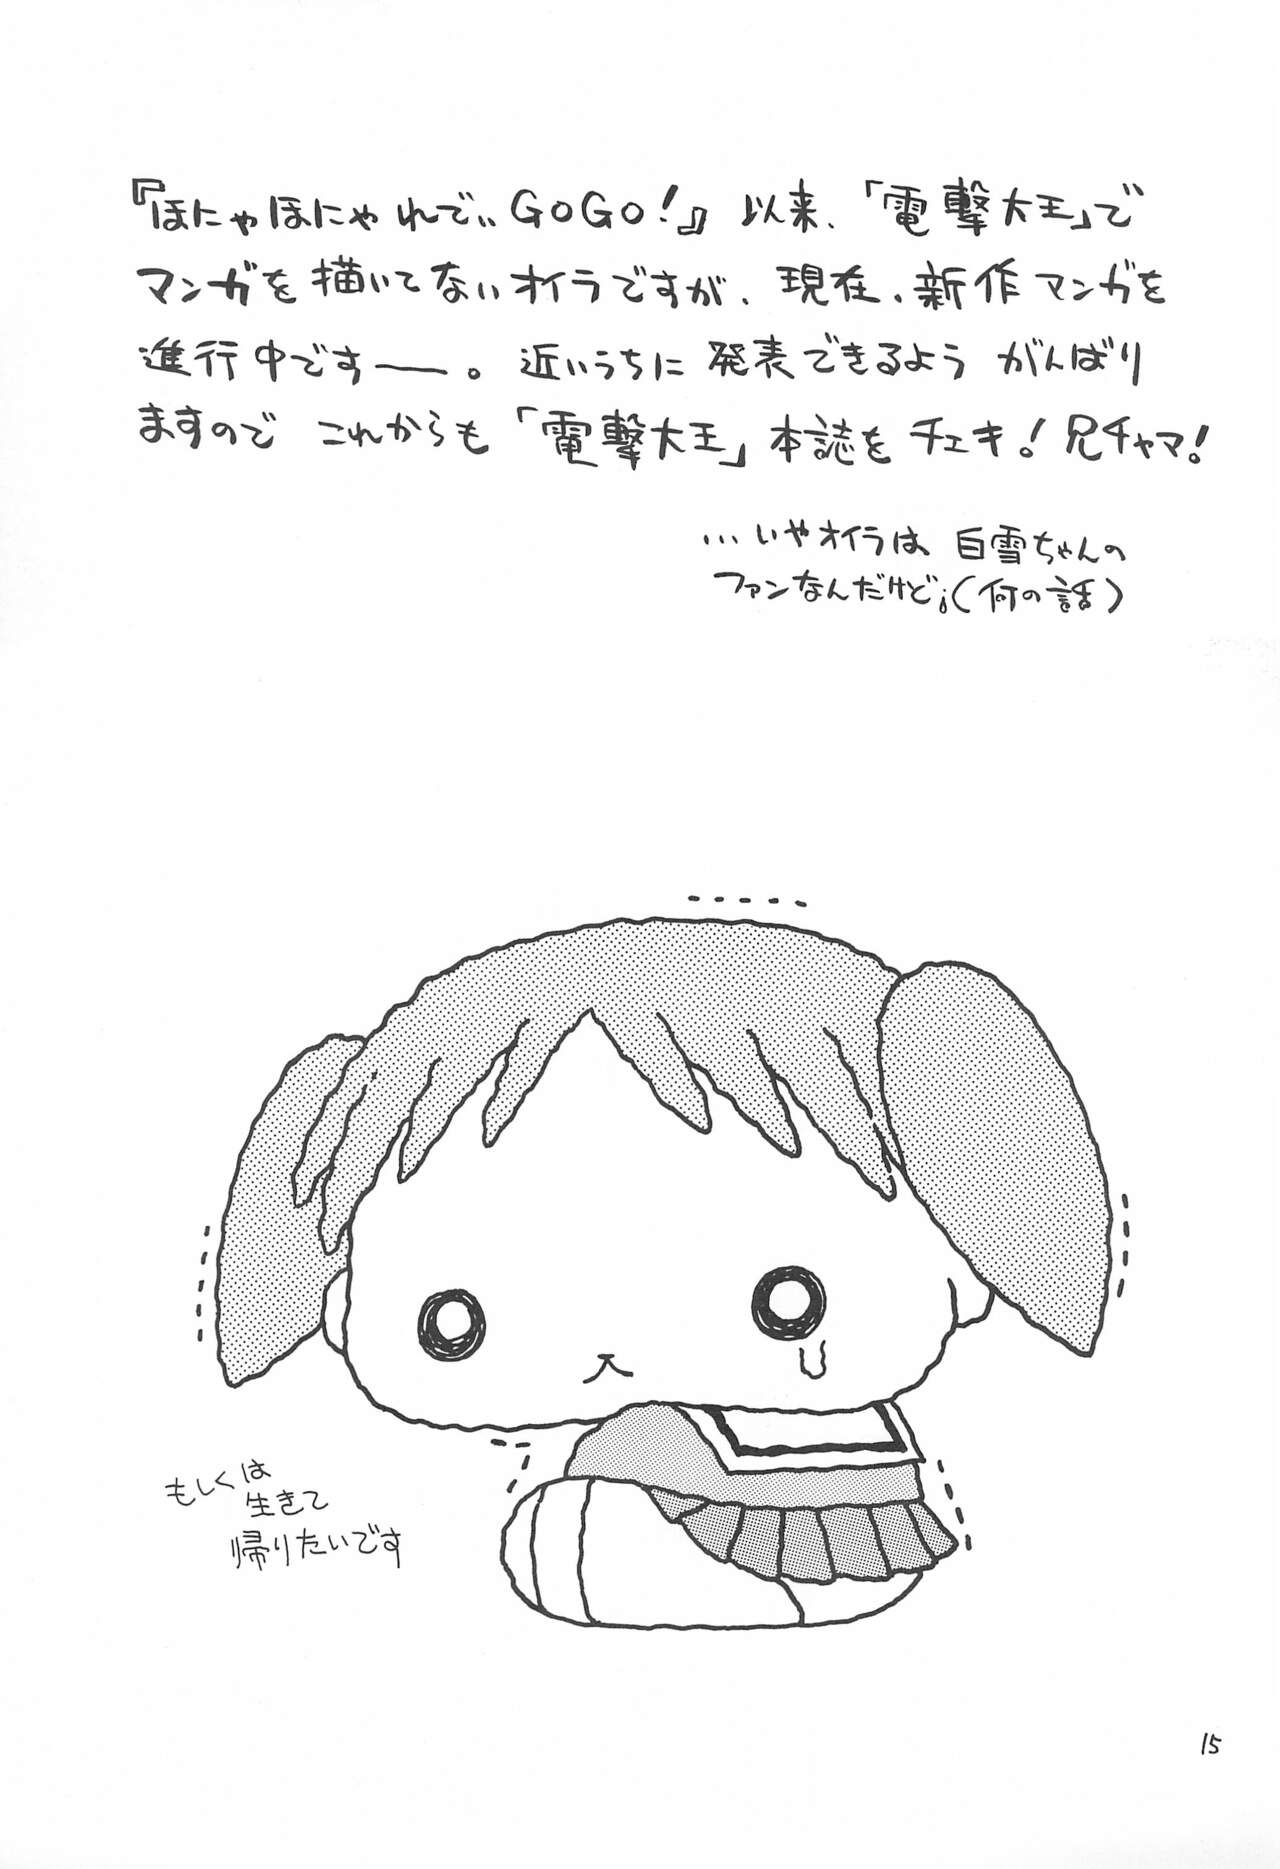 『ほにゃほにゃれでぃGoGo!』以来、「電撃大王」で
マンガを描いてないオイラですが、現在、新作マンガを
進行中ですーー。近いうちに発表できるよう がんばり
ますので これからも「電撃大王」本誌をチェキ!兄チャマ!
…いやオイラは、白雪ちゃんの
ファンなんだけど;(何の話)
もしくは
生きて
帰りたいです
15